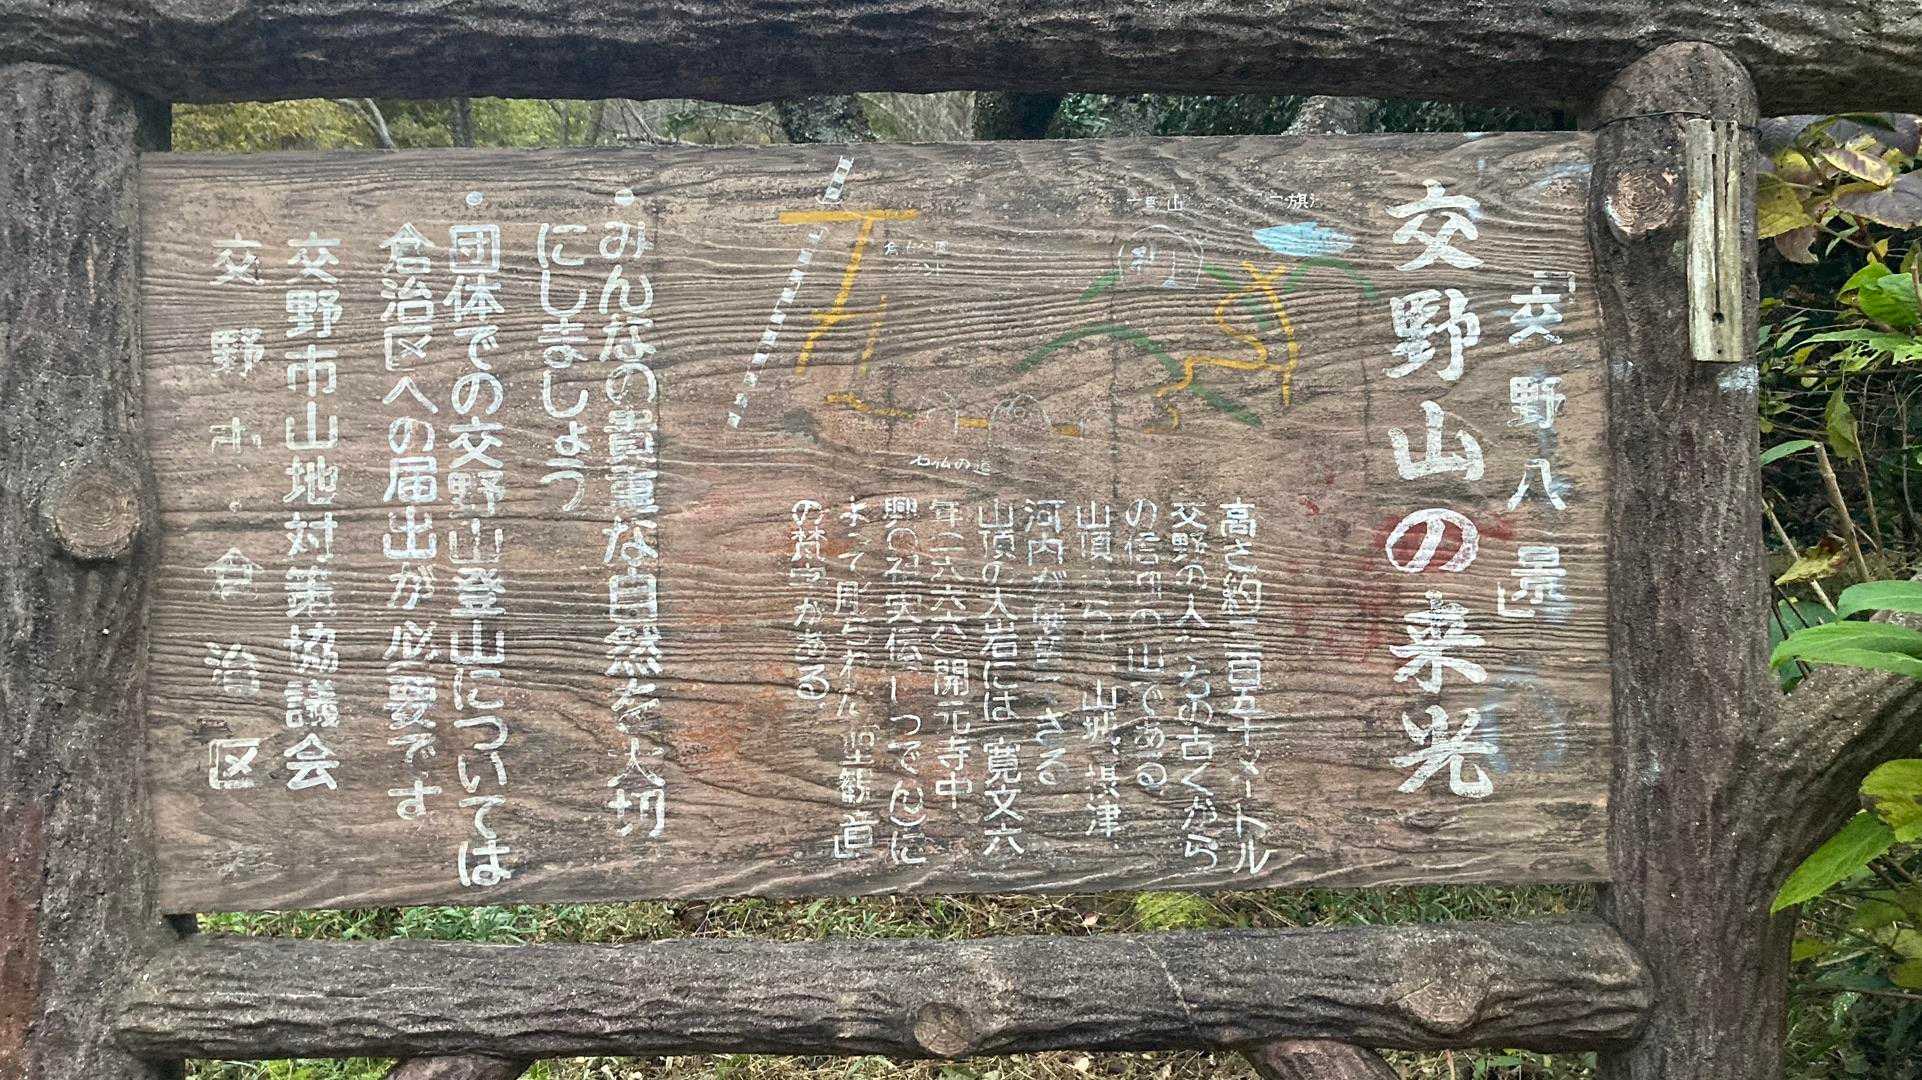 「交野八景」
交野山の来光
高さ約三百五十メートル
交野の人々の古くから
の信仰の山である
山頂からは、山城、摂津、
河内が
山頂の大岩には寛文六
年(一六六六)開元寺中
興の祖実伝(じつでん)に
よって彫られた聖観音
の梵字がある
みんなの貴重な自然を大切
にしましょう
団体での交野山登山については
倉治区への届出が必要です
交野市山地対策協議会
交野市倉治区